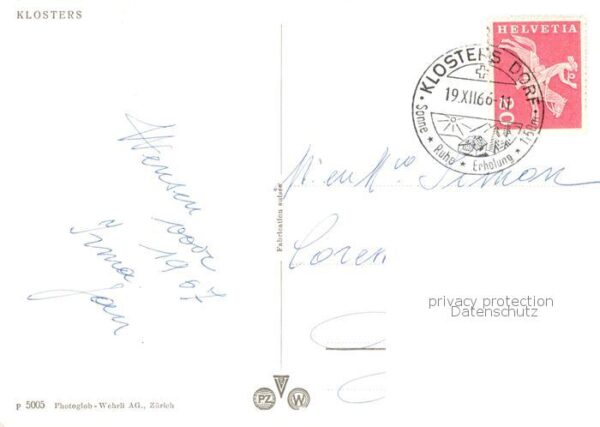 KLOSTERS
HELVETIA
20
KLOSTERS DORF
19.XII.66-11
Sonne ★ Ruhe ★ Erholung ★ 1150m
Wensen voor
1967
Irma
Jan
Mr en Mme Simon
Loren
Fabrication suisse
privacy protection
Datenschutz
P 5005 Photoglob-Wehrli AG., Zürich
PZ
W